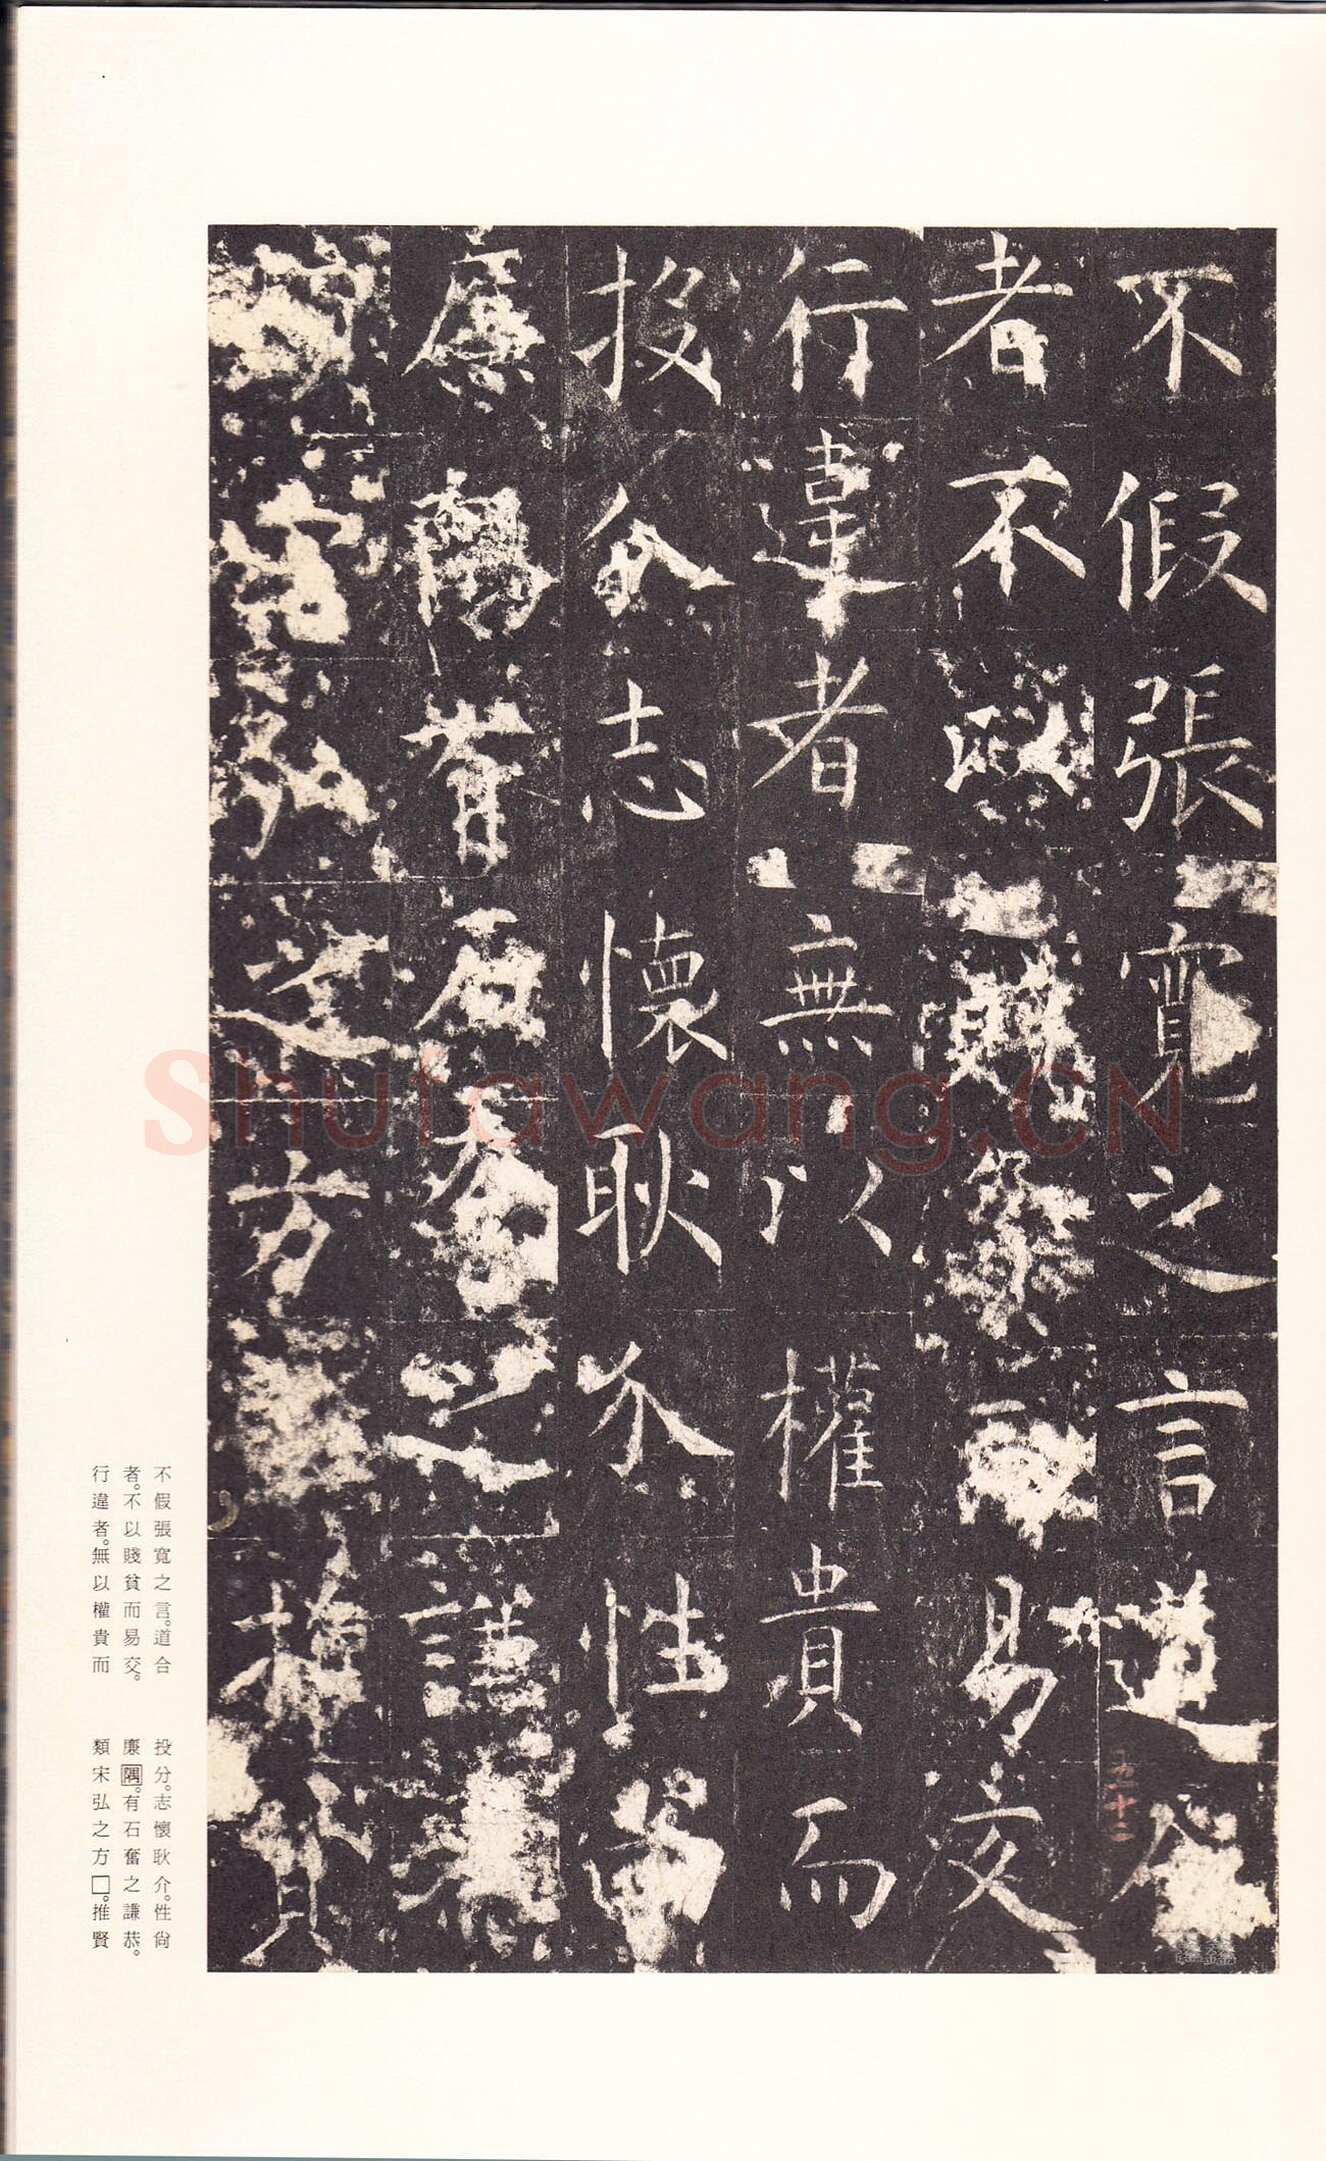 不假張寬之言道合
者不以賤貧而易交
行違者無以權貴而
投分志懷耿介性尚
廉隅有石奮之謙恭
宋弘之方推賢
五十二
不假張寬之言。道合
者。不以賤貧而易交。
行違者。無以權貴而
投分。志懷耿介。性尙
廉隅。有石奮之謙恭。
類宋弘之方□。推賢
Shufawang.CN